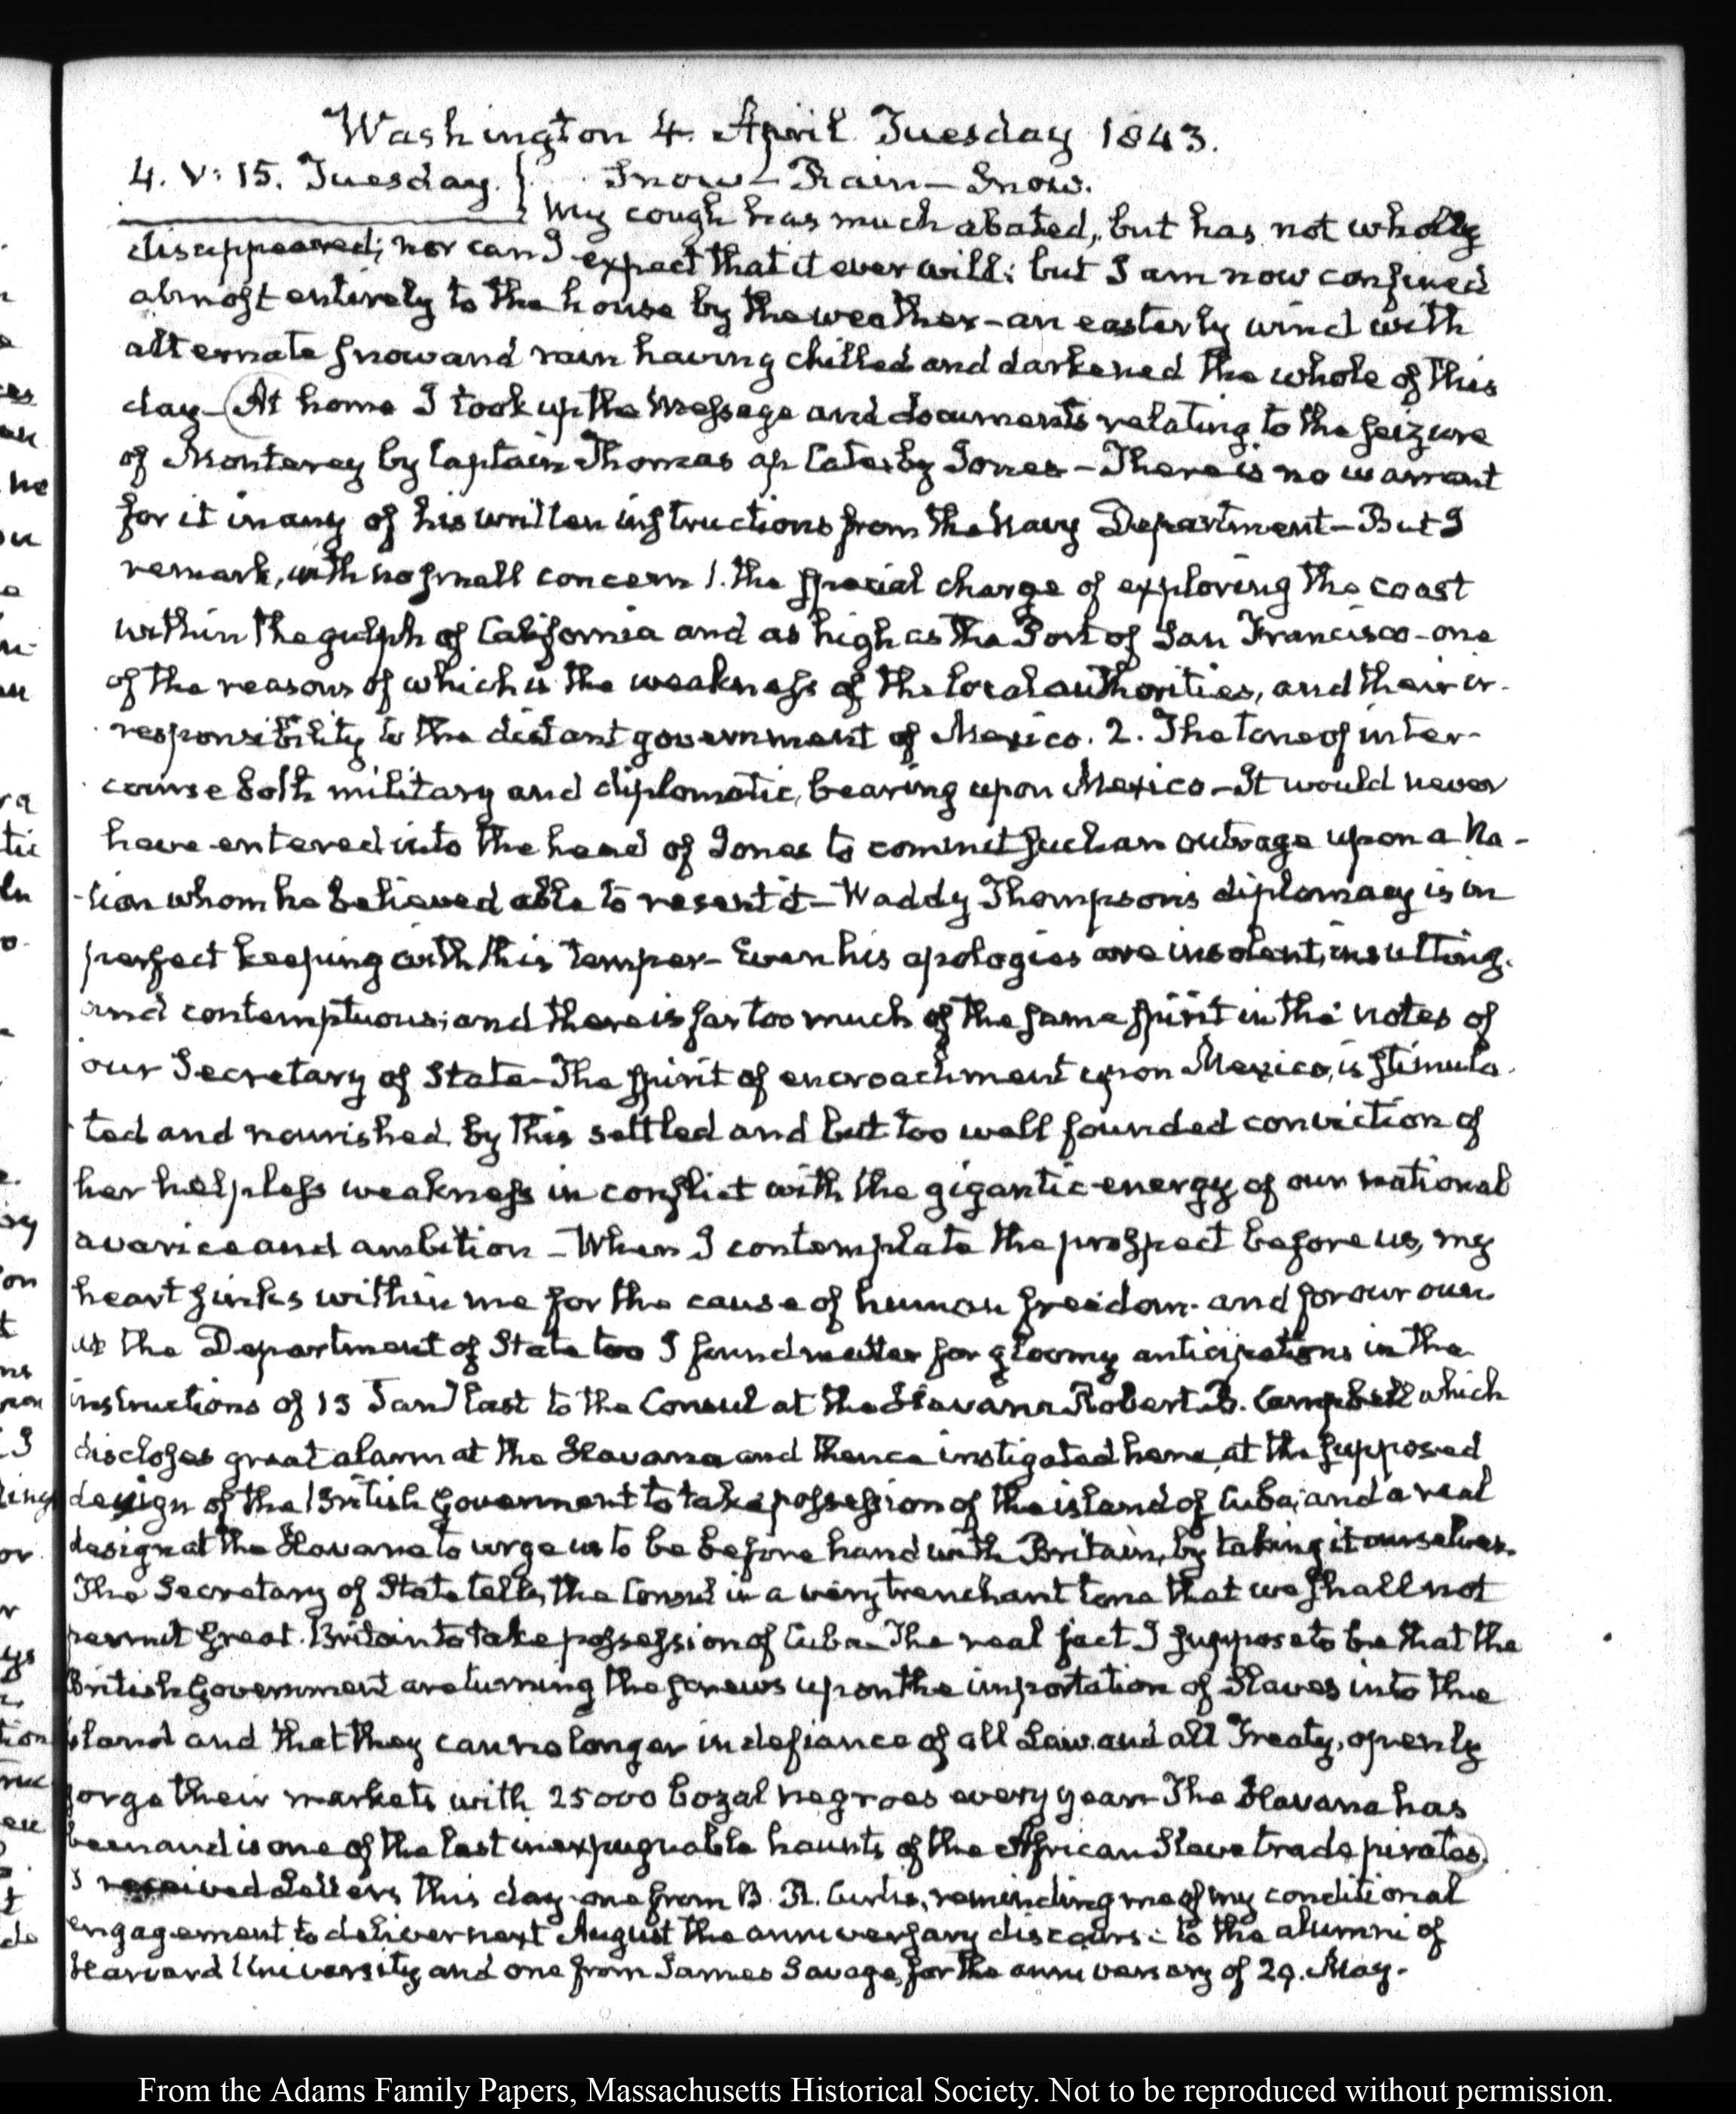 Washington 4. April Tuesday 1843.
4. V: 15. Tuesday. } Snow – Rain – Snow.
My cough has much abated, but has not wholly
disappeared; nor can I expect that it ever will: but I am now confined
almost entirely to the house by the weather – an easterly wind with
alternate snow and rain having chilled and darkened the whole of this
day – (At home I took up the Message and documents relating to the seizure
of Monterey by Captain Thomas ap Catesby Jones – There is no warrant
for it in any of his written instructions from the Navy Department – But I
remark, with no small concern 1. the special charge of exploring the coast
within the gulph of California and as high as the Port of San Francisco – one
of the reasons of which is the weakness of the local authorities, and their ir-
responsibility to the distant government of Mexico. 2. The tone of inter-
course both military and diplomatic, bearing upon Mexico – It would never
have entered into the head of Jones to commit such an outrage upon a Na-
-tion whom he believed able to resent it – Waddy Thompson's diplomacy is in
perfect keeping with this temper – Even his apologies are insolent, insulting.
and contemptuous; and there is far too much of the same spirit in the notes of
our Secretary of State – The spirit of encroachment upon Mexico, is stimula-
ted and nourished, by this settled and but too well founded conviction of
her helpless weakness in conflict with the gigantic energy of our national
avarice and ambition – When I contemplate the prospect before us, my
heart sinks within me for the cause of human freedom. and for our own
at the Department of State too I found matter for gloomy anticipations in the
instructions of 13 Jany last to the Consul at the Havanna Robert B. Campbell which
discloses great alarm at the Havana and thence instigated here, at the supposed
design of the British Government to take possession of the island of Cuba; and a real
design at the Havana to urge us to be before hand with Britain, by taking it ourselves.
The Secretary of State tells the Consul in a very trenchant tone that we shall not
permit Great Britain to take possession of Cuba – The real fact I suppose to be that the
British Government are turning the screws upon the importation of Slaves into the
island and that they can no longer in defiance of all Law, and all Treaty, openly
gorge their markets with 25000 bozal negroes every year – The Havana has
been and is one of the last inexpugnable haunts of the African Slave trade pirates.)
I received Letters this day one from B. R. Curtis, reminding me of my conditional
engagement to deliver next August the anniversary discourse to the alumni of
Harvard University and one from James Savage, for the anniversary of 29. May.
From the Adams Family Papers, Massachusetts Historical Society. Not to be reproduced without permission.